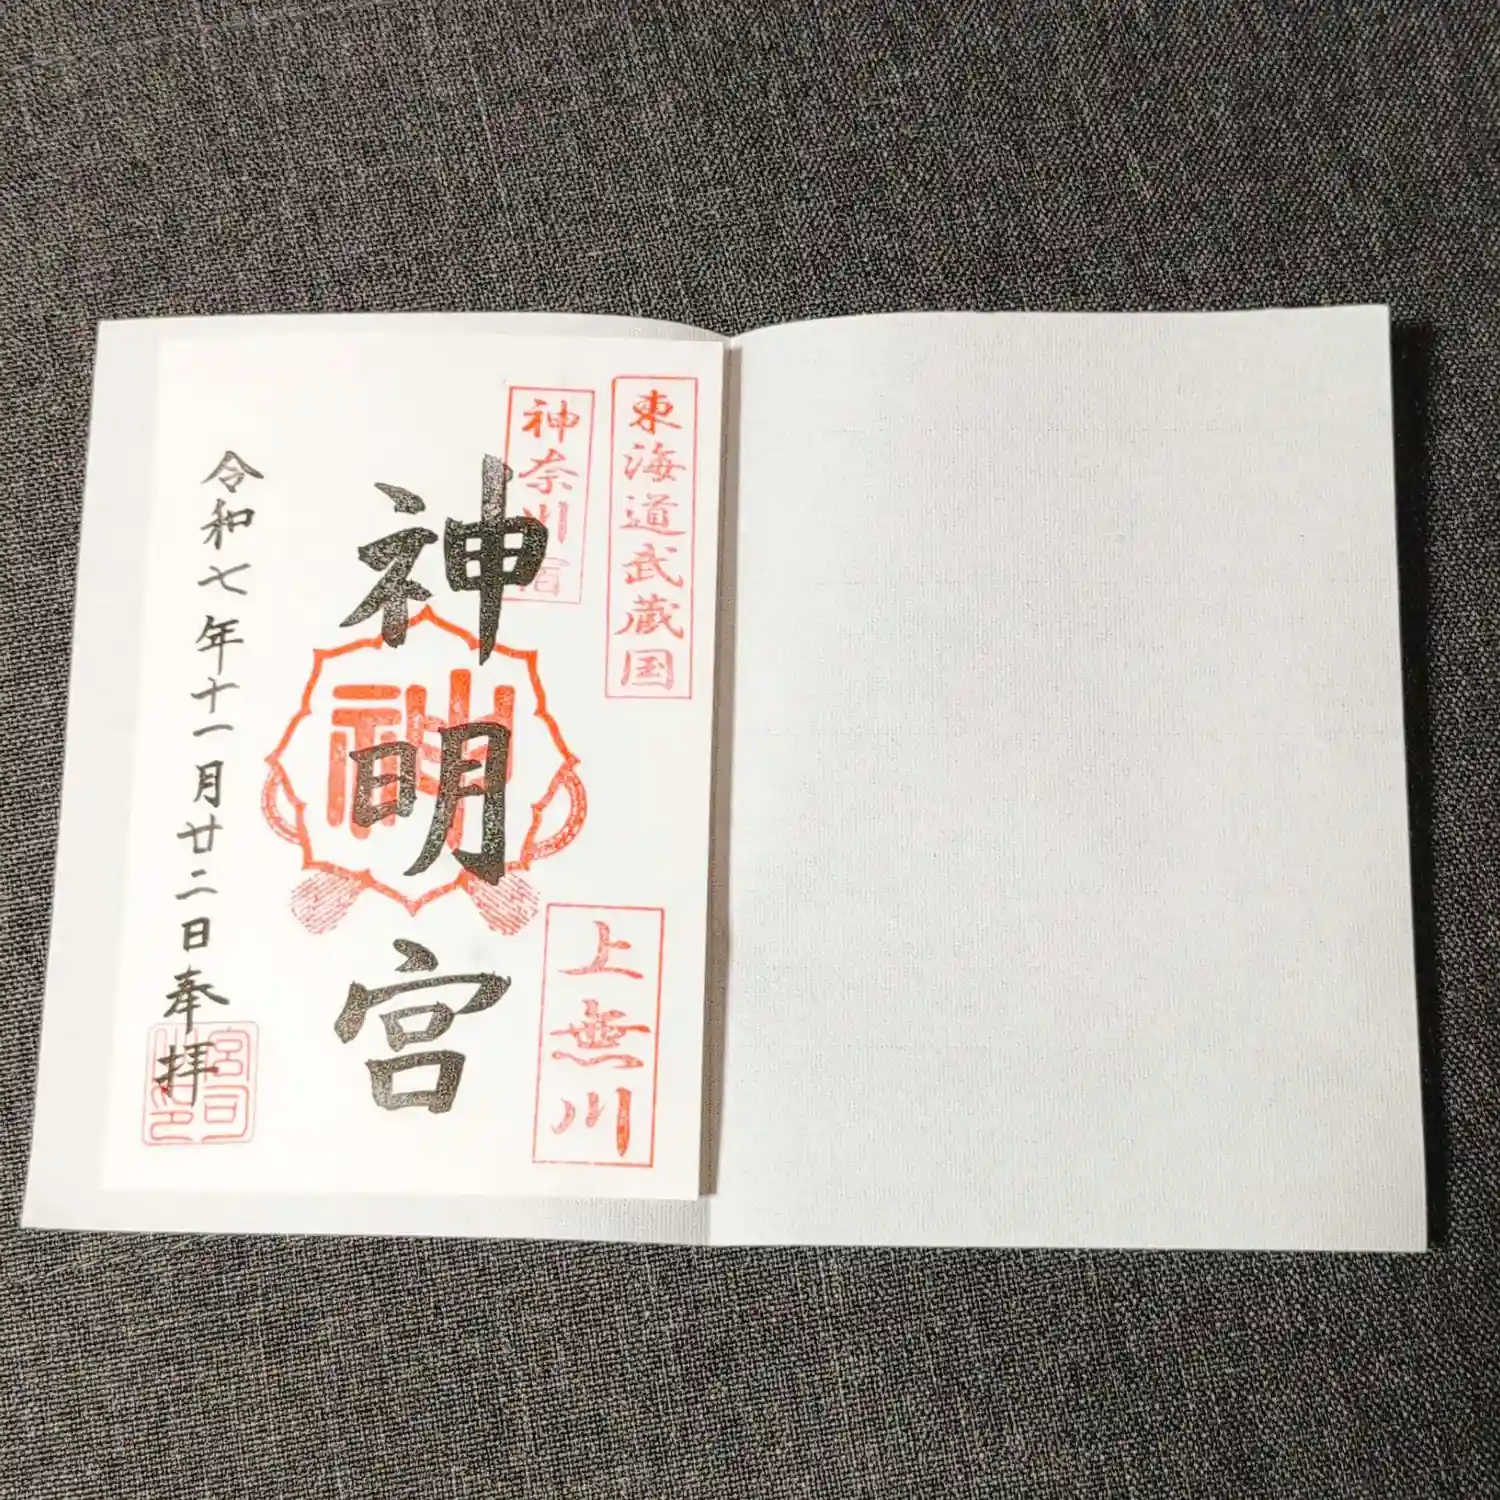 東海道武蔵国
神奈川宿
上無川
神明宮
神
令和七年十一月廿二日奉拝
宮司